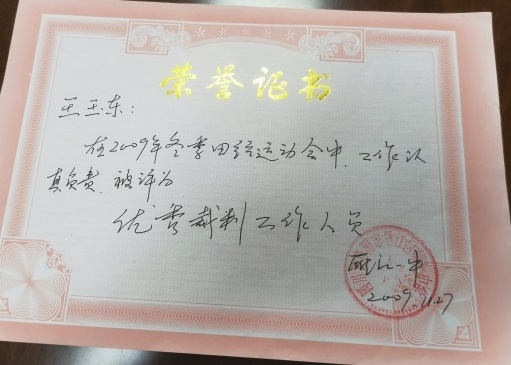 荣誉证书
王玉东:
在2009年冬季田径运动会中,工作认
真负责,被评为
优秀裁判工作人员
一中
2009.11.27